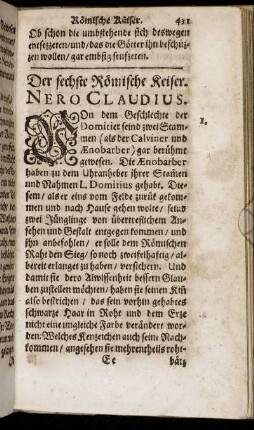 Römische Käiser. 431
Ob schon die umbstehende sich deswegen
entsetzeten/ und/ das die Götter ihn beschüt-
zen wollen/ gar embsig seufzeten.
Der sechste Römische Keiser.
NERO CLAUDIUS.
VOn dem Geschlechte der
Domitier seind zwei Stäm-
men (als der Calviner und
Ænobarber) gar berühmt
gewesen. Die Ænobarber
1.
haben zu dem Uranheber ihrer Stamen
und Nahmen L. Domitius gehabt. Die-
sem/ als er eins vom Felde zurük gekom-
men und nach Hause gehen wolte/ seind
zwei Jünglinge von übertreflichem An-
sehen und Gestalt entgegen kommen/ und
ihn anbefohlen/ er solle dem Römischen
Raht den Sieg/ so noch zweifelhaftig/ al-
bereit erlanget zu haben/ versichern. Und
damit sie dero Alwissenheit bessern Glau-
ben zustellen möchten/ haben sie seinen Kift
also bestrichen/ das sein vorhin gehabtes
schwarze Haar in Roht und dem Erze
nicht eine ungleiche Farbe verändert wor-
den: Welches Kenzeichen auch seine Nach-
kommen/ angesehen sie mehrentheils roht-
Ee bär-